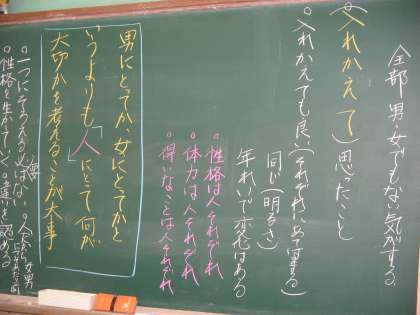 全部男、女でもない気がする。
(入れかえて)思ったこと
。入れかえても良い(それぞれにあてはまる)
同じ(明るさ)
年れいで変化はある
。性格は人それぞれ
。体力は人それぞれ
。得いなことは人それぞれ
男にとってか、女にとってかと
いうよりも「人」にとって何が
大切かを考えることが大事
。一つにそろえる必要はない
。性格を生かしていく。違いを認める